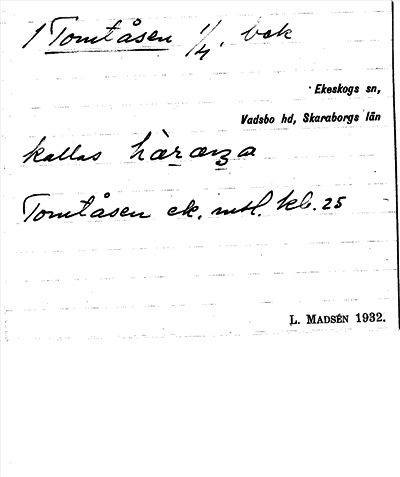 1 Tomtåsen 1/4. bok
Ekeskogs sn,
Vadsbo hd, Skaraborgs län
kallas
Tomtåsen ek. mtl. kb. 25
L. MADSÉN 1932.